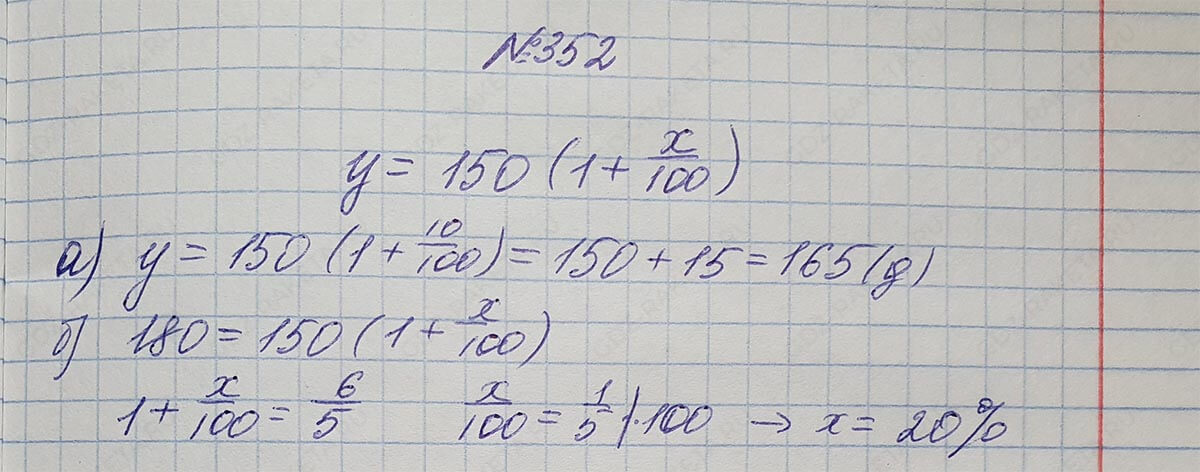 №352
y = 150 (1 + x/100)
а) y = 150 (1 + 10/100) = 150 + 15 = 165 (д)
б) 180 = 150 (1 + x/100)
1 + x/100 = 6/5 x/100 = 1/5 |·100 → x = 20%